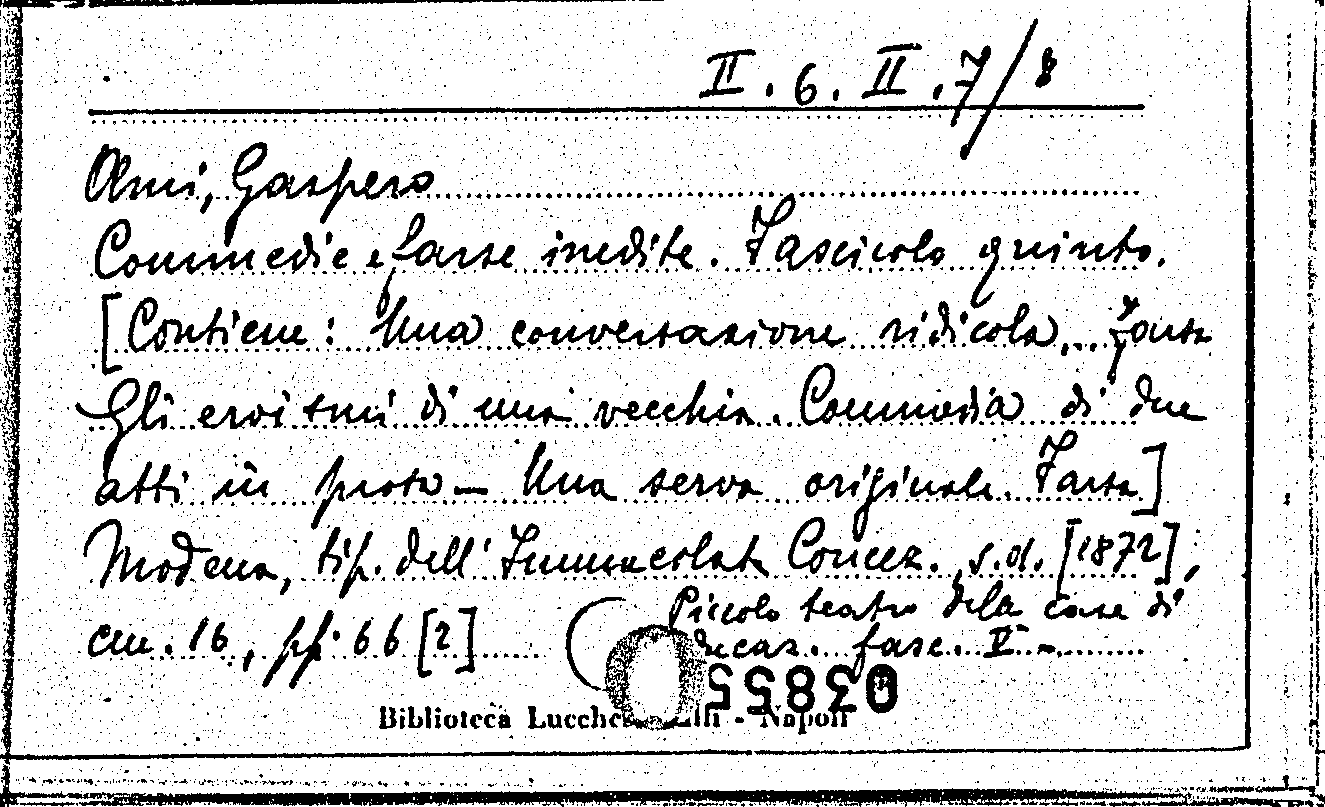 II. 6. II. 7/8
Olmi, Gaspero
Commedie e farse inedite. Fascicolo quinto.
[Contiene: Una conversazione ridicola. Farsa
Gli eroismi di una vecchia. Commedia di due
atti in prosa — Una serva originale. Farsa]
Modena, tip. dell' Immacolata Concez. s.d. [1872],
cm. 16, pp. 66 [2]
(Piccolo teatro delle case di
educaz. fasc. V -
03855
Biblioteca Lucchesi Palli - Napoli